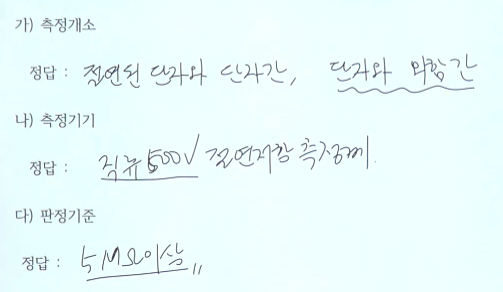 가) 측정개소
정답 : 절연된 단자와 단자간, 단자와 외함간
나) 측정기기
정답 : 직류 500V 절연저항 측정계.
다) 판정기준
정답 : 5 MΩ이상 〃